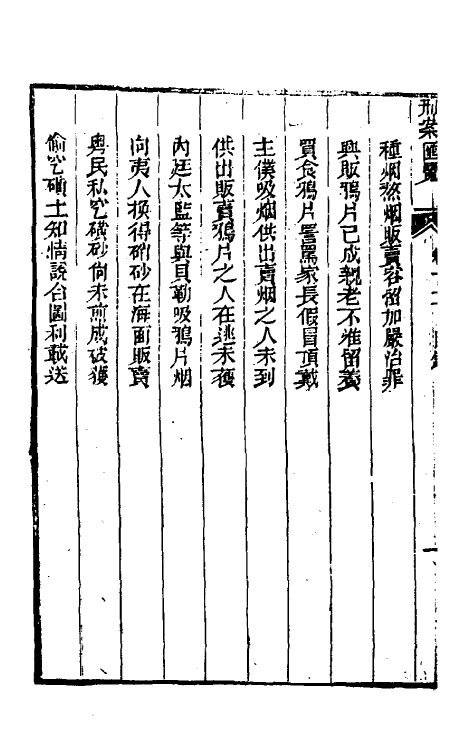 刑案匯覽
種烟煞烟販賣容留加嚴治罪
興販鴉片已成親老不准留養
買食鴉片詈罵家長假冒頂戴
主僕吸烟供出賣烟之人未到
供出販賣鴉片之人在逃未獲
內廷太監等與貝勒吸鴉片烟
向夷人換得硝砂在海面販賣
粵民私挖磺砂尙未煎成被獲
偷挖磺土知情說合圖利載送